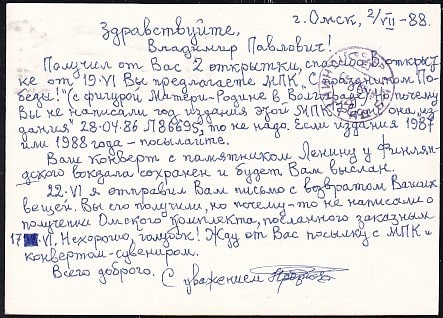 г. Омск, 2/VII-88.
Здравствуйте,
Владимир Павлович!
Получил от Вас 2 открытки, спасибо. В открыт-
ке от 19.VI Вы предлагаете МПК „С праздником По-
беды!" (с фигурой Матери-Родине в Волгограде). Но почему
Вы не написали год издания этой МПК? Если она „из-
дания" 28.04.86 Л86695, то не надо. Если издания 1987
или 1988 года - посылайте.
Ваш конверт с памятником Ленину у Финлян-
дского вокзала сохранен и будет Вам выслан.
22.VI я отправил Вам письмо с возвратом Ваших
вещей. Вы его получили, но почему-то не написали о
получении Омского комплекта, посланного заказным
17.VI. Нехорошо, голубок! Жду от Вас посылку с МПК и
конвертом-сувениром.
Всего доброго. С уважением